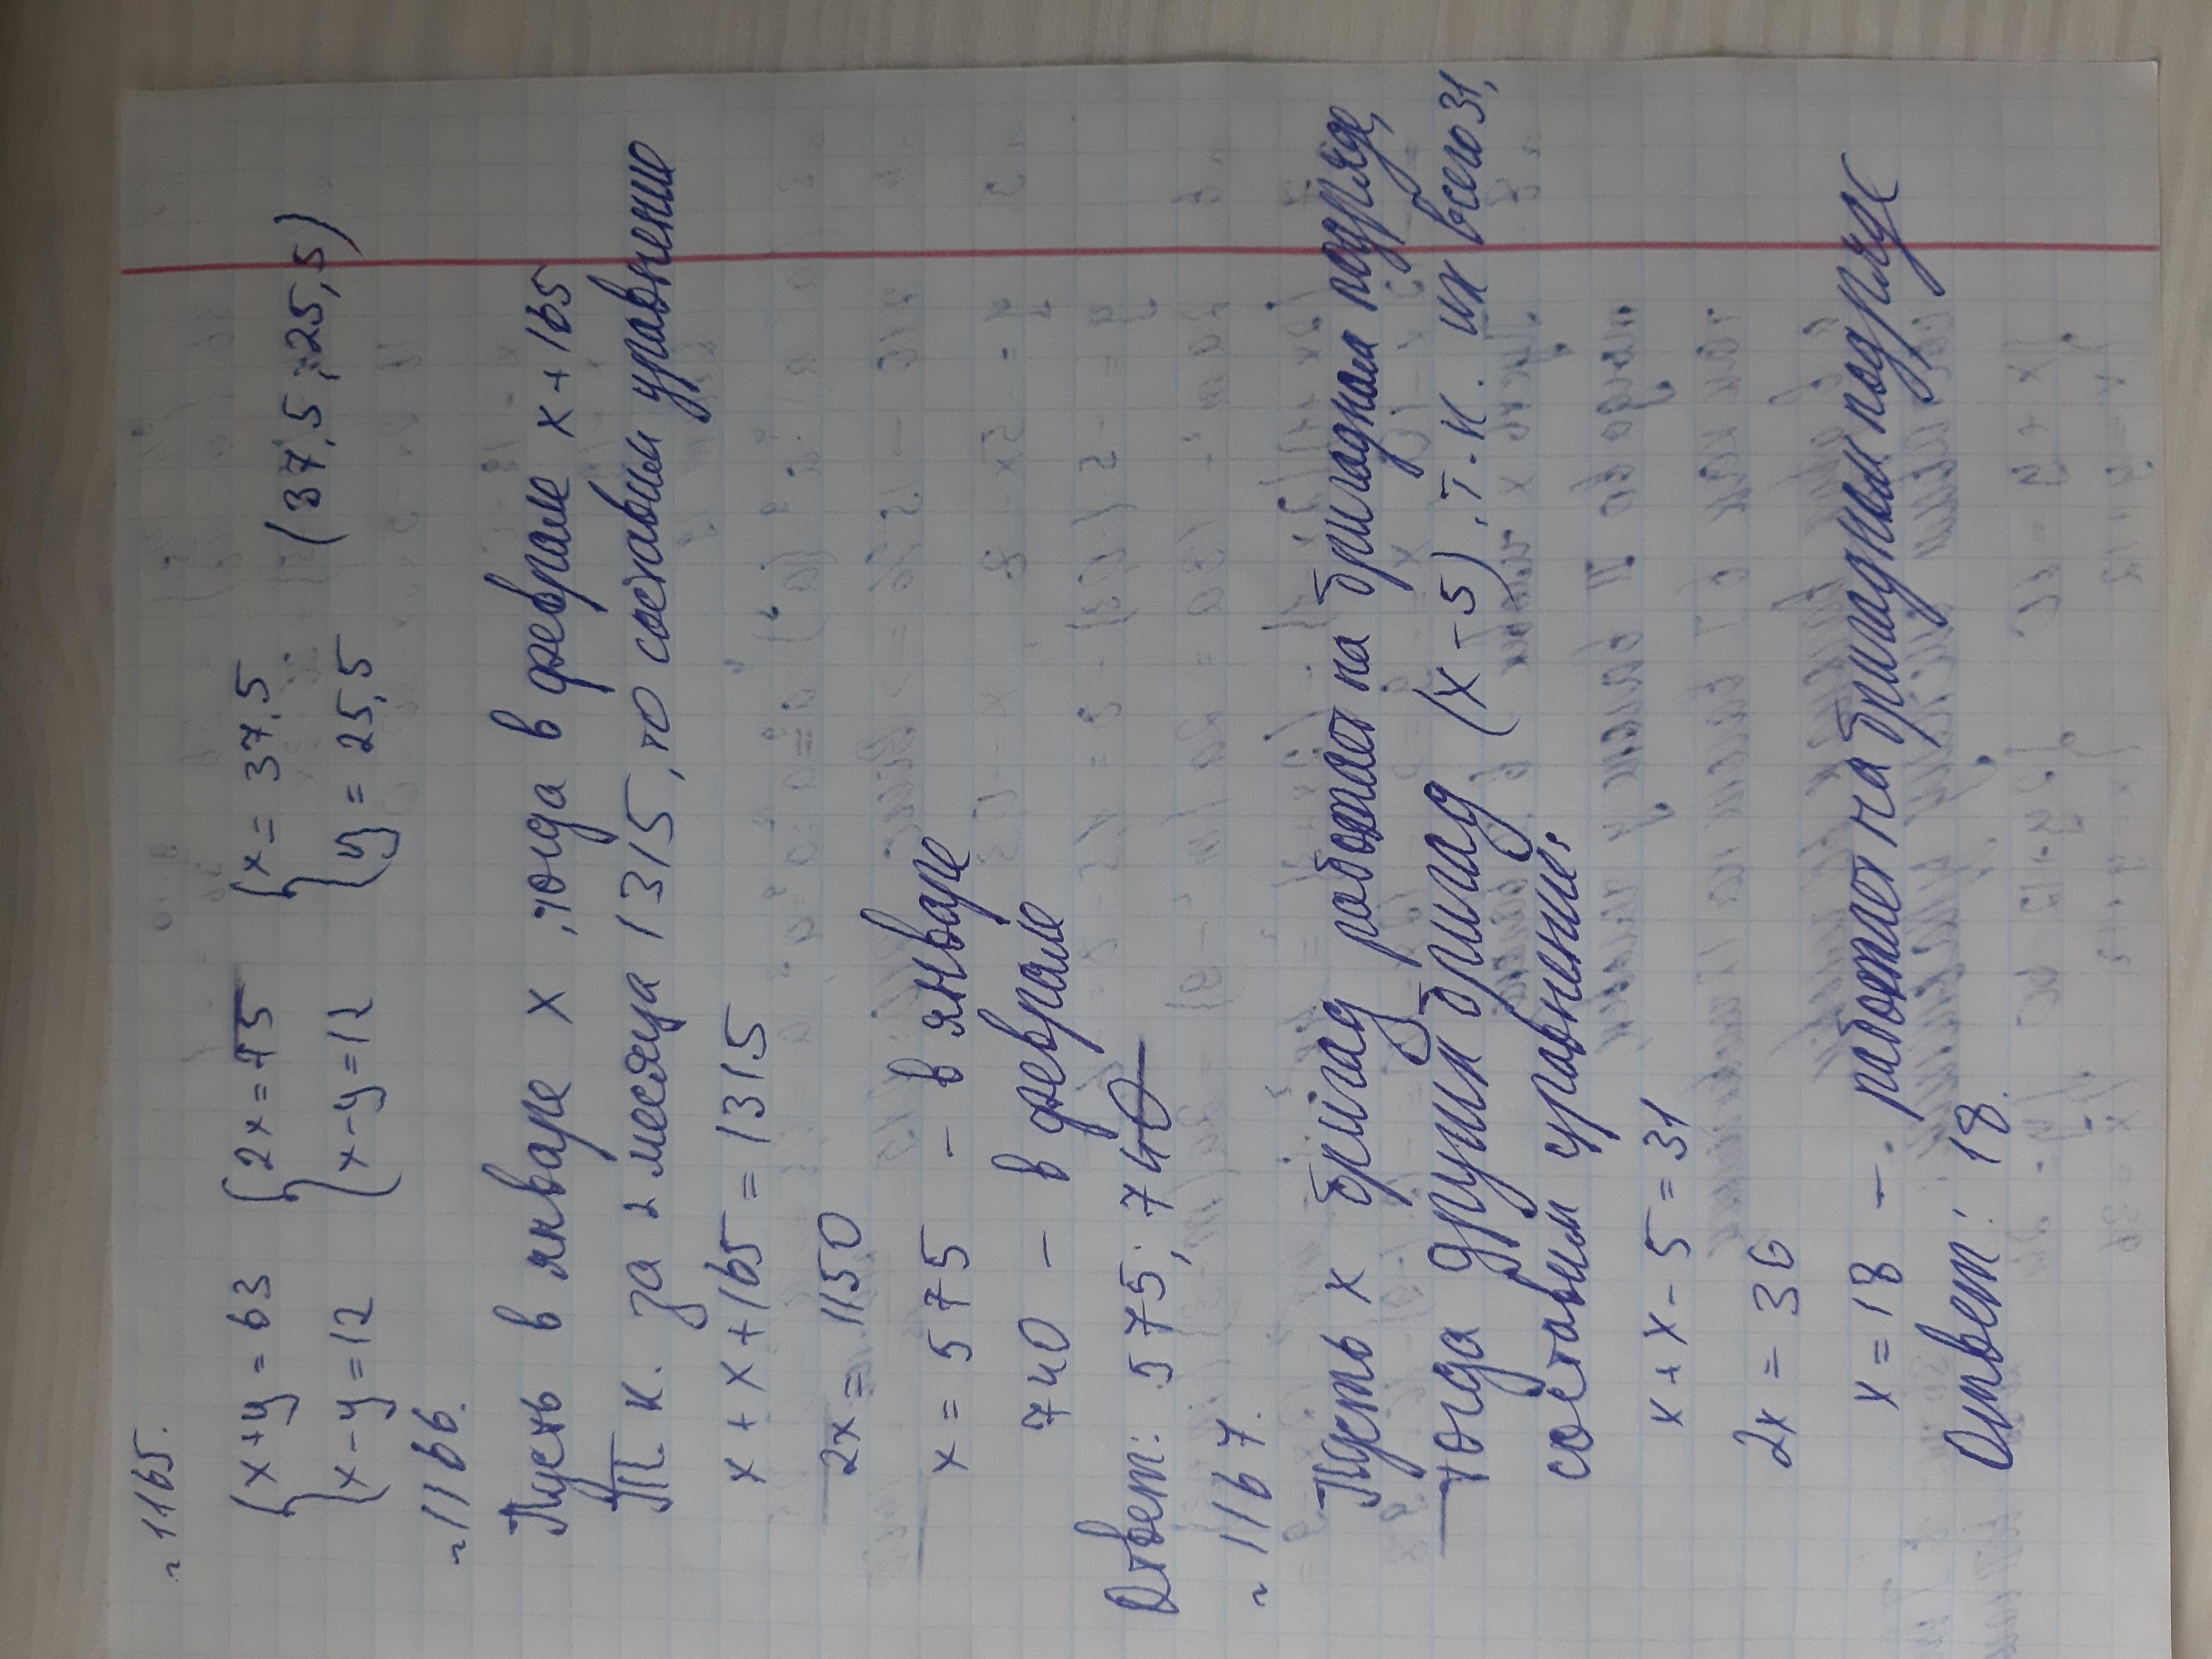 ~ 1165.
{x+y=63 {2x=75 {x=37,5 (37,5; 25,5)
{x-y=12 {x-y=12 {y=25,5
~ 1166.
Пусть в январе x, тогда в феврале x+165
Т.к. за 2 месяца 1315, то составим уравнение
x+x+165=1315
2x=1150
x=575 - в январе
740 - в феврале
Ответ: 575; 740
~ 1167.
Пусть x бригад работает на бригадном подряде,
тогда других бригад (x-5), т.к. их всего 31,
составим уравнение:
x+x-5=31
2x=36
x=18 - работает на бригадным подряде
Ответ: 18.